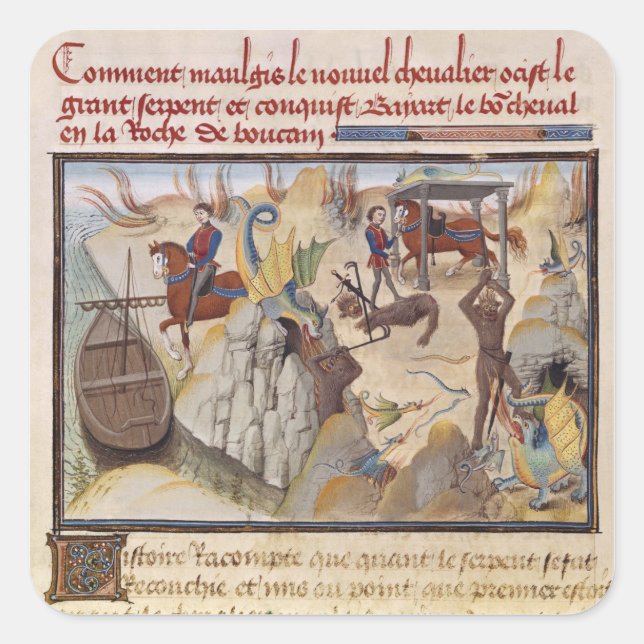 Comment maulgis le nouvel chevalier ocist le
grant serpent et conquist Baiart le bõ cheval
en la Roche de boucan
istoire Racompte que quant le serpent se fut
Recouchie et mis ou point que premier estoit